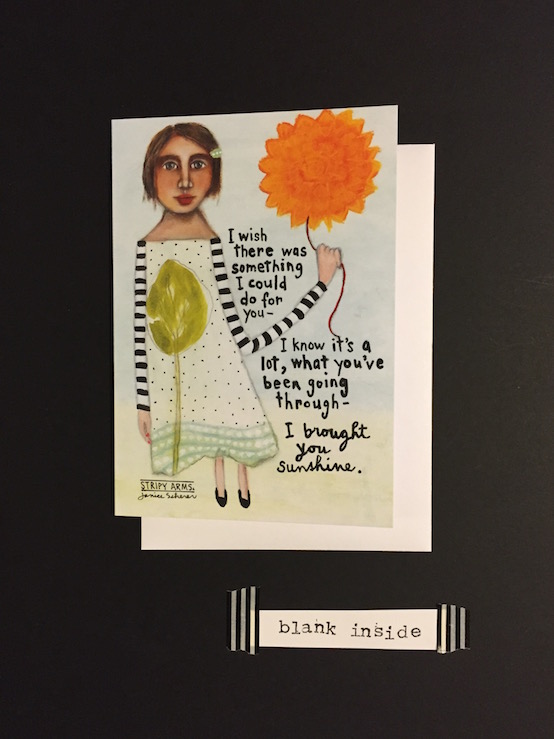 I wish
there was
something
I could
do for
you-
I know it's a
lot, what you've
been going
through-
I brought
you
sunshine.
STRIPY ARMS.
Janice Scherer
blank inside